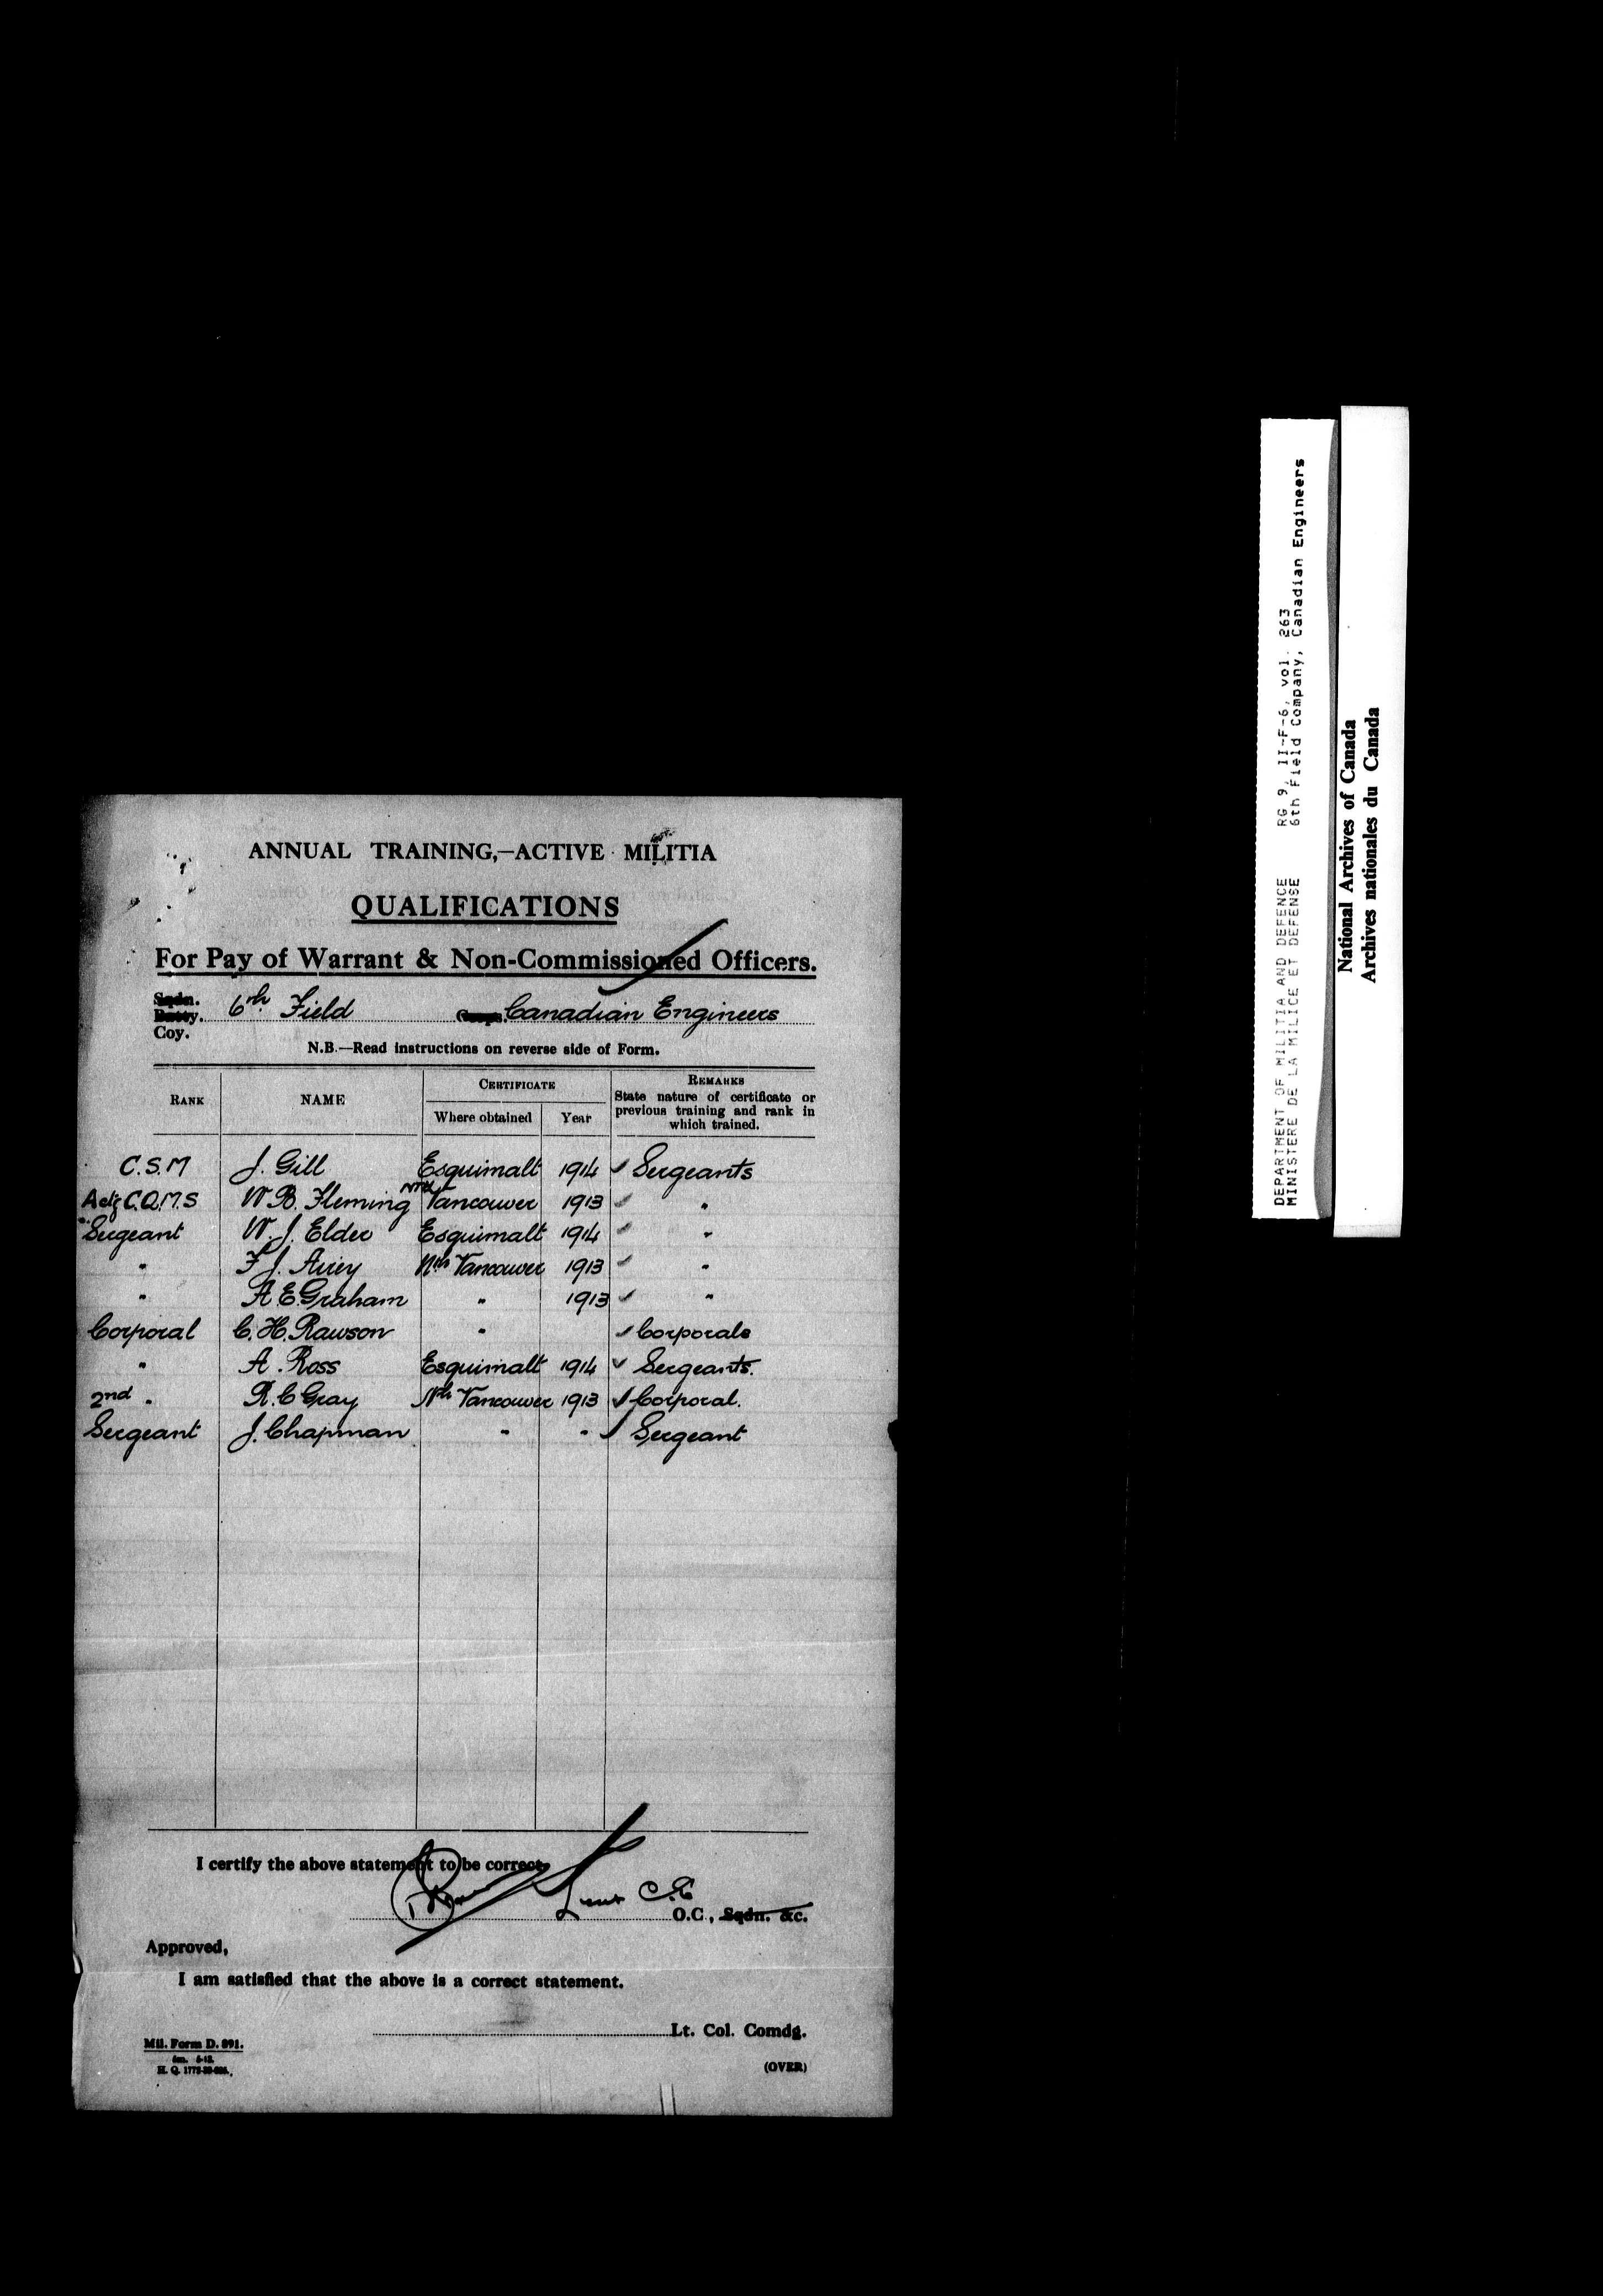 ANNUAL TRAINING,—ACTIVE MILITIA
QUALIFICATIONS
For Pay of Warrant & Non-Commissioned Officers.
Sqdn.
Batty. 6th Field Corps. Canadian Engineers
Coy.
N.B.—Read instructions on reverse side of Form.
RANK NAME CERTIFICATE Where obtained Year REMARKS State nature of certificate or previous training and rank in which trained.
C.S.M J. Gill Esquimalt 1914 ✓ Sergeants
Actg C.Q.M.S W.B. Fleming Nth Vancouver 1913 ✓ "
Sergeant W. J. Elder Esquimalt 1914 ✓ "
" F. J. Airey Nth Vancouver 1913 ✓ "
" A. E. Graham " 1913 ✓ "
Corporal C. H. Rawson " ✓ Corporals
" A. Ross Esquimalt 1914 ✓ Sergeants.
2nd " R. C Gray Nth Vancouver 1913 ✓ Corporal.
Sergeant J. Chapman " " ✓ Sergeant
I certify the above statement to be correct.
Lieut C.E
O.C., Sqdn. &c.
Approved,
I am satisfied that the above is a correct statement.
Lt. Col. Comdg.
Mil. Form D. 891.
H. Q. 1772-39-
(OVER)
DEPARTMENT OF MILITIA AND DEFENCE RG 9, II-F-6, vol. 263
MINISTERE DE LA MILICE ET DEFENSE 6th Field Company, Canadian Engineers
National Archives of Canada
Archives nationales du Canada